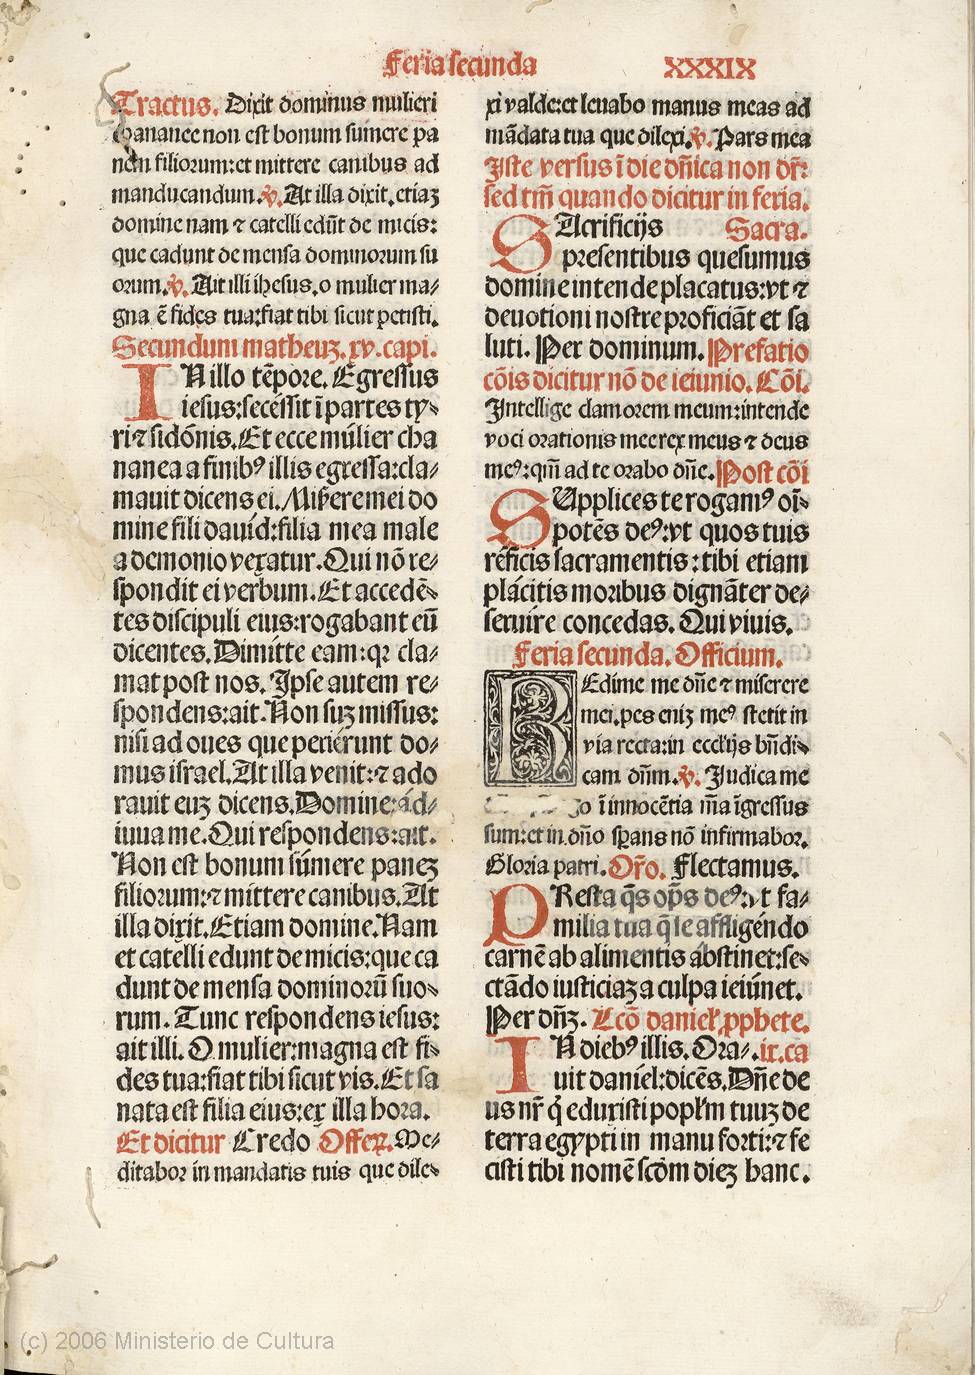 Feria secunda
XXXIX
Tractus. Dixit dominus mulieri
chananee non est bonum sumere pa
nem filiorum:et mittere canibus ad
manducandum.℣.At illa dixit.etiaꝫ
domine nam ⁊ catelli edūt de micis:
que cadunt de mensa dominorum su
orum.℣.Ait illi ihesus.o mulier ma⸗
gna ē fides tua:fiat tibi sicut petisti.
Secundum matheuꝫ.xv.capi.
IN illo tēpore.Egressus
iesus:secéssit ī partes ty⸗
ri⁊ sidónis.Et ecce múlier cha
nanea a finibꝰ illis egressa:cla⸗
mauit dicens ei.Miserere mei do
mine fili dauid:filia mea male
a demonio vexatur.Qui nō re⸗
spondit ei verbum.Et accedē⸗
tes discipuli eius:rogabant eū
dicentes.Dimítte eam:qꝛ cla⸗
mat post nos.Ipse autem re⸗
spondens:ait.Non suꝫ missus:
nisi ad oues que periérunt do⸗
mus israel.At illa venit:⁊ ado
rauit euꝫ dicens.Domine:ád⸗
iuua me.Qui respondens:ait.
Non est bonum súmere paneꝫ
filiorum:⁊ mittere canibus.At
illa dixit.Etiam domine.Nam
et catelli edunt de micis:que ca
dunt de mensa dominoꝛū suo⸗
rum.Tunc respondens iesus:
ait illi.O mulier:magna est fi⸗
des tua:fiat tibi sicut vis.Et sa
nata est filia eius:ex illa hoꝛa.
Et dicitur Credo Offeꝝ.Me⸗
ditaboꝛ in mandatis tuis que dile⸗
xi valde:et leuabo manus meas ad
mādata tua que dilexi.℣.Pars mea
Iste versus ī die dn̄ica non dr̄:
sed tm̄ quando dicitur in feria.
SAcrificijs Sacra.
presentibus quesumus
domine intende placatus:vt ⁊
deuotioni nostre proficiāt et sa
luti.Per dominum.Prefatio
cōis dicitur nō de ieiunio.Cōi.
Intellige clamorem meum:intende
voci orationis mee rex meus ⁊ deus
meꝰ:qm̄ ad te orabo dn̄e.Post cōi
SUpplices te rogamꝰ oī⸗
potēs deꝰ:vt quos tuis
réficis sacramentis:tibi etiam
plácitis moribus dignāter de⸗
seruíre concedas.Qui viuis.
Feria secunda.Officium.
REdime me dn̄e ⁊ miserere
mei.pes eniꝫ meꝰ stetit in
via recta:in eccl'ijs bn̄di⸗
cam dn̄m.℣.Iudica me
go ī innocētia m̄a īgressus
sum:et in dn̄o sꝑans nō infirmabor.
Gloria patri.Or̄o.Flectamus.
PResta q̄s op̄s deꝰ:vt fa⸗
milia tua q̄ se affligéndo
carnē ab alimentis ábstinet:se⸗
ctādo iusticiaꝫ a culpa ieiúnet.
Per dn̄ꝫ.Lcō daniel' ꝓphete.
IN diebꝰ illis.Ora⸗.ix.ca
uit daniel:dicēs.Dn̄e de
us nr̄ q̇ eduxisti popl'm tuuꝫ de
terra egypti in manu forti:⁊ fe
cisti tibi nomē scd̄m dieꝫ hanc.
(c) 2006 Ministerio de Cultura